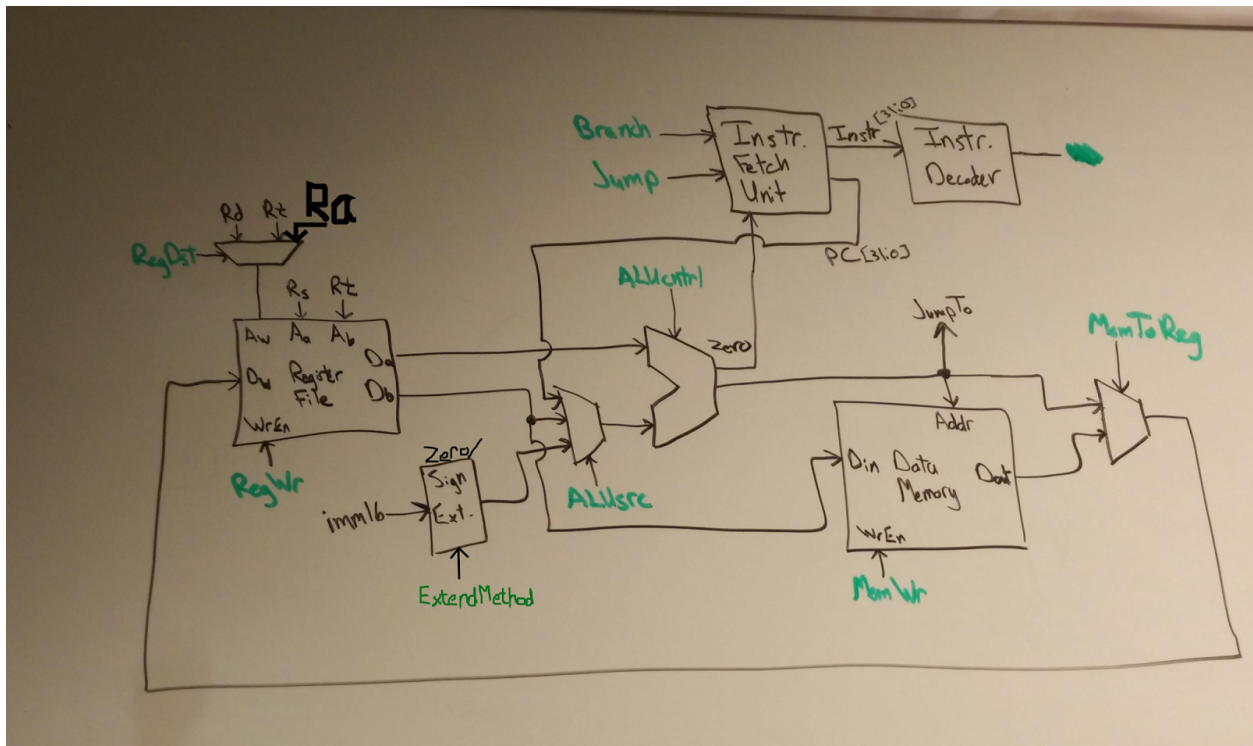 Branch
Jump
Instr.
Fetch
Unit
Instr [31:0]
Instr.
Decoder
PC[31:0]
Rd
Rt
Ra
RegDst
Rs
Rt
Aw
Aa
Ab
Dw
Register
File
Da
Db
WrEn
RegWr
ALUcntrl
Zero
Zero/
Sign
Ext.
imm16
ExtendMethod
ALUsrc
JumpTo
MemToReg
Addr
Din
Data
Memory
Dout
WrEn
MemWr